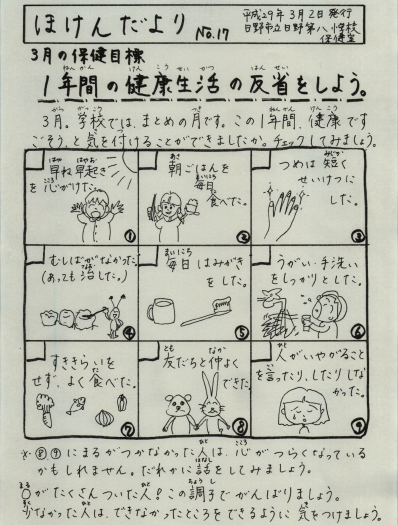 ほけんだより No.17
平成29年3月2日発行
日野市立日野第八小学校
保健室
3月の保健目標
1年間の健康生活の反省をしよう。
3月。学校では、まとめの月です。この1年間、健康です
ごそうと気を付けることができましたか。チェックしてみましょう。
早ね早起き
を心がけた。
①
朝ごはんを
毎日
食べた。
②
つめは短く
せいけつに
した。
③
むしばがなかった。
(あっても治した。)
④
毎日はみがき
をした。
⑤
うがい・手洗い
をしっかりとした。
⑥
すききらいを
せず、よく食べた。
⑦
友だちと仲よく
できた。
⑧
人がいやがること
を言ったり、したりしな
かった。
⑨
※⑧⑨にまるがつかなかった人は、心がつらくなっている
かもしれません。だれかに話をしてみましょう。
○がたくさんついた人!この調子でがんばりましょう。
少なかった人は、できなかったところをできるように気をつけましょう。